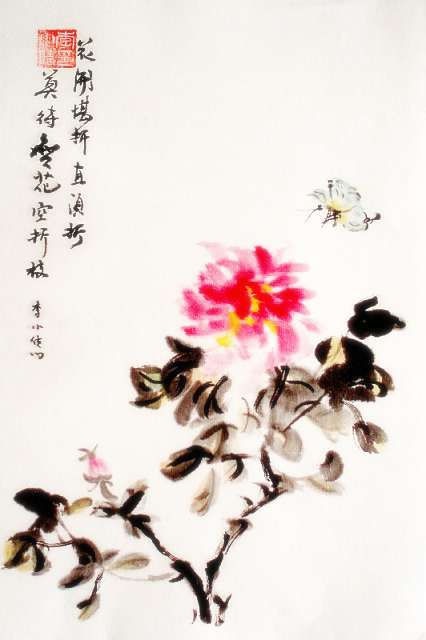 花開堪折直須折
莫待無花空折枝
李小